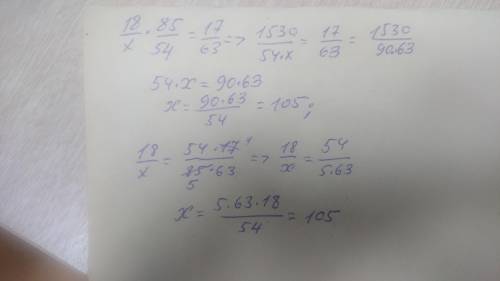 18/x · 85/54 = 17/63 => 1530/54·x = 17/63 = 1530/90·63
54·x = 90·63
x = 90·63/54 = 105;
18/x = 54·17¹/85·63 => 18/x = 54/5·63
5
x = 5·63·18/54 = 105